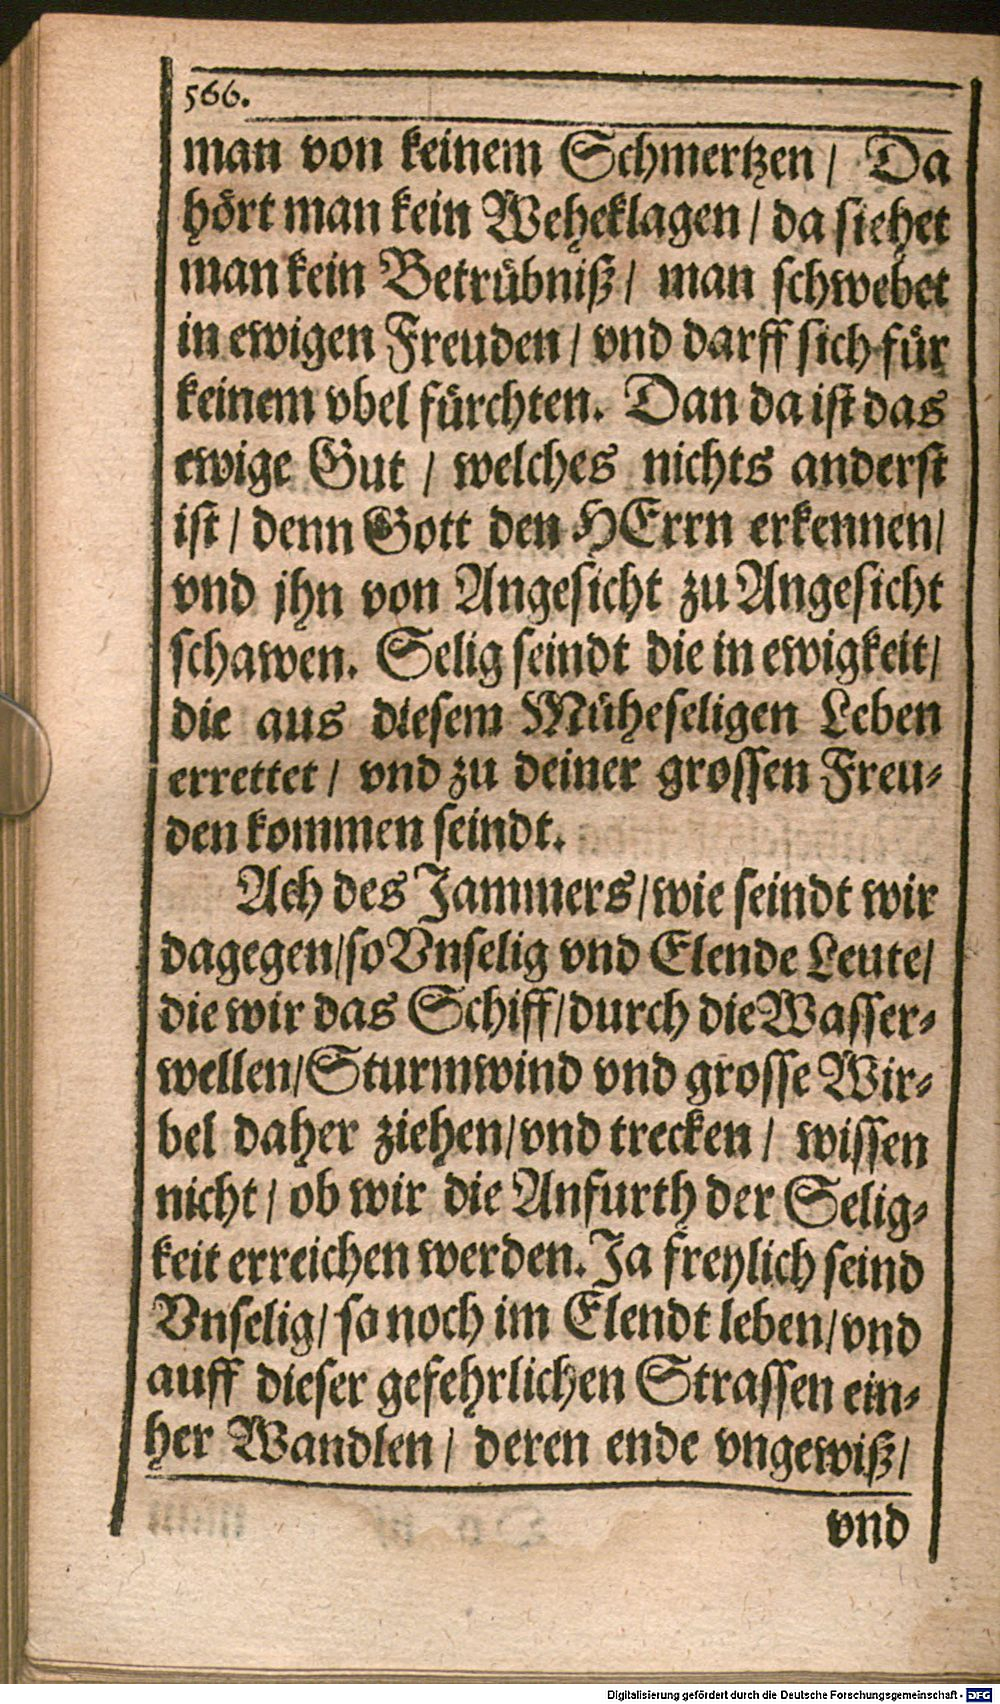 566.
man von keinem Schmertzen / Da
hört man kein Weheklagen / da siehet
man kein Betrübniß / man schwebet
in ewigen Freuden / vnd darff sich für
keinem vbel fürchten. Dan da ist das
ewige Gut / welches nichts anderst
ist / denn Gott den HErrn erkennen /
vnd jhn von Angesicht zu Angesicht
schawen. Selig seindt die in ewigkeit /
die aus diesem Müheseligen Leben
errettet / vnd zu deiner grossen Freu-
den kommen seindt.
Ach des Jammers / wie seindt wir
dagegen / so Vnselig vnd Elende Leute /
die wir das Schiff / durch die Wasser-
wellen / Sturmwind vnd grosse Wir-
bel daher ziehen / vnd trecken / wissen
nicht / ob wir die Anfurth der Selig-
keit erreichen werden. Ja freylich seind
Vnselig / so noch im Elendt leben / vnd
auff dieser gefehrlichen Strassen ein-
her Wandlen / deren ende vngewiß /
vnd
Digitalisierung gefördert durch die Deutsche Forschungsgemeinschaft - DFG